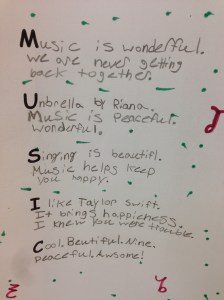 Music is wonderful.
we are never getting
back together.
Unbrella by Riana.
Music is peaceful.
wonderful.
Singing is beautifl.
Music helps keep
you happy.
I like Taylor Swift.
It brings happieness.
I knew you were trouble.
Cool. Beutiful. Nine.
peaceful. Awsome!